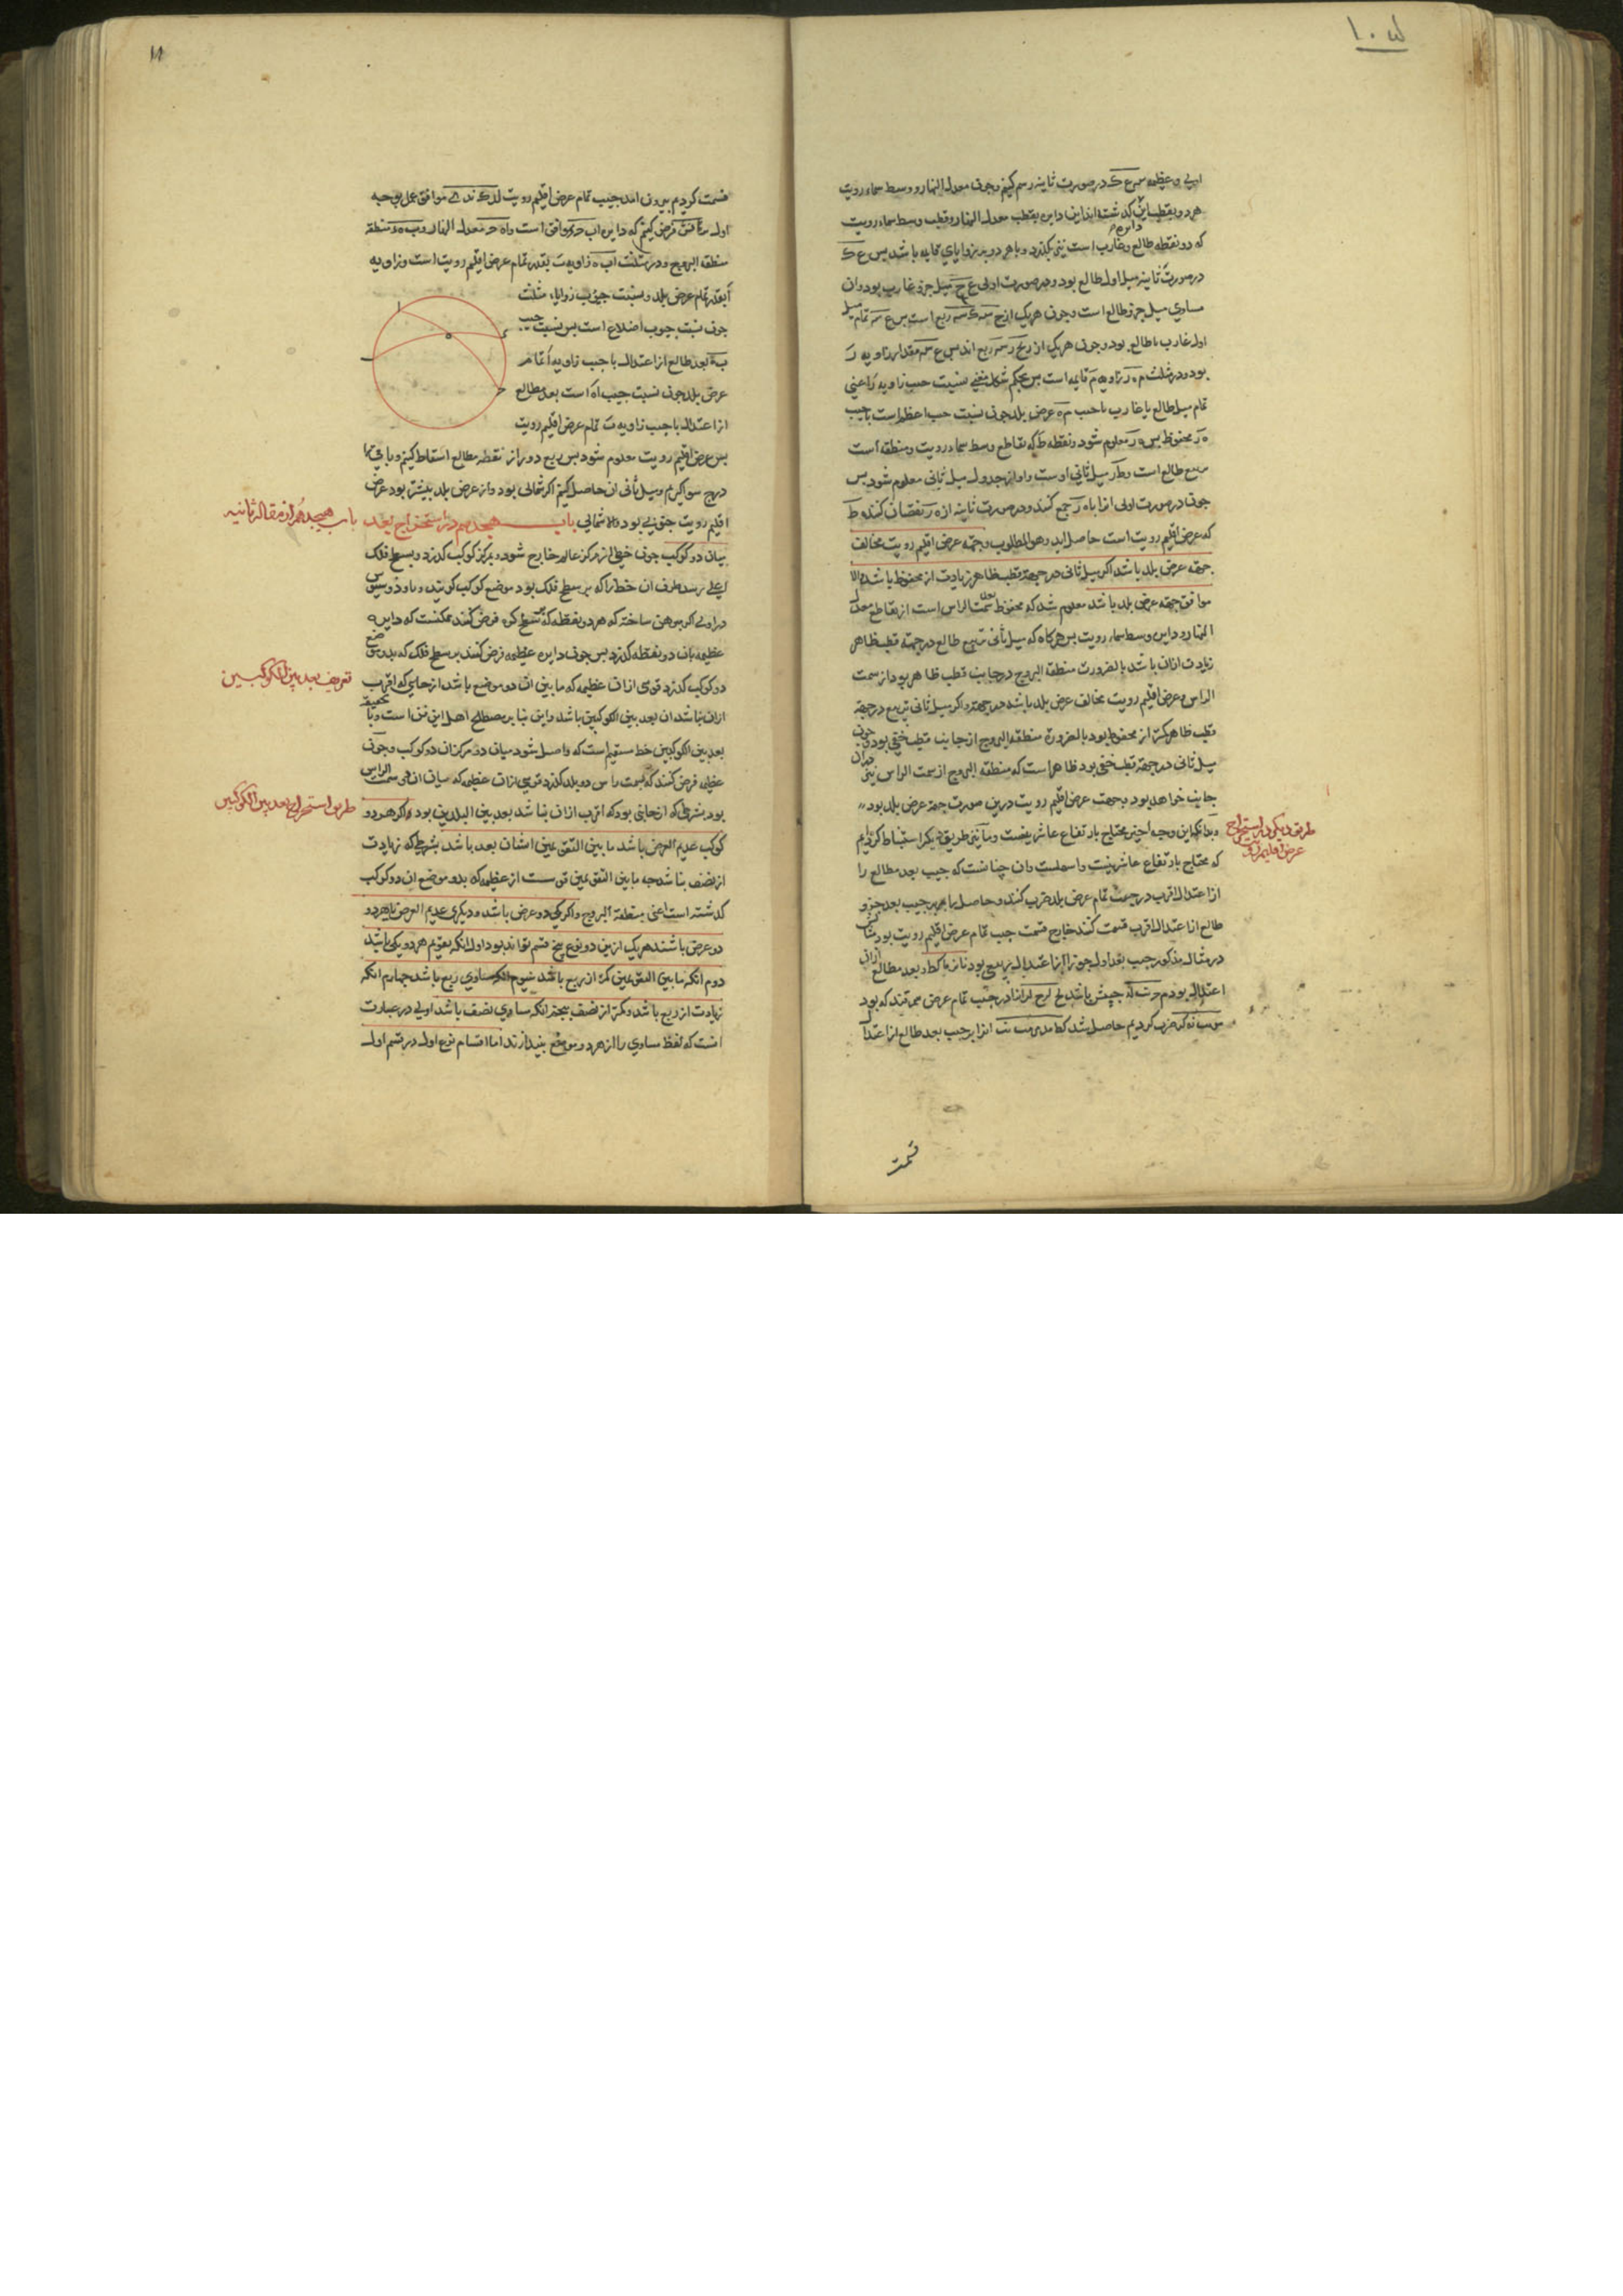 اولی و عظیمه س ع ک در صورت ثانیه رسم کنیم و چون معدل النهار و وسط سماء رویت
هر دو بقطب این دایره گذشته‌اند این دایره بقطب معدل النهار و قطب وسط سماء رویت
که دو نقطه طالع و غارب است نیز بگذرد و با هر دو بر زوایای قایمه باشد پس ع ک
در صورت ثانیه میل اول طالع بود و در صورت اولی ع ح میل جزو غارب بود و ان
مساوی میل جزو طالع است و چون هر یک از ربع است پس ع س تمام میل
اول غارب یا طالع بود و چون هر یک از ربع اند پس ع س مقدار زاویه ر
بود و در مثلث م ه ر زاویه م قایمه است پس بحکم شکل مغنی نسبت جیب زاویه ر اعنی
تمام میل طالع یا غارب با جیب م ه عرض بلد چون نسبت جیب اعظم است با جیب
ه ر محفوظ پس ه ر معلوم شود و نقطه ط که تقاطع وسط سماء رویت و منطقه است
ربیع طالع است و ط ر میل ثانی اوست و او از جدول میل ثانی معلوم شود پس
چون در صورت اولی انرا با ه ر جمع کنند و در صورت ثانیه از ه ر نقصان کنند ه ط
که عرض اقلیم رویت است حاصل اید و هو المطلوب و جهة عرض اقلیم رویت مخالف
جهة عرض بلد باشد اگر میل ثانی در جهة قطب ظاهر زیادت از محفوظ باشد و الا
موافق جهة عرض بلد باشد معلوم شد که محفوظ بعد سمت الراس است از تقاطع معدل
النهار و دایره وسط سماء رویت پس هرگاه که میل ثانی ربیع طالع در جهة قطب ظاهر
زیادت ازان باشد بالضرورت منطقة البروج در جانب قطب ظاهر بود از سمت
الراس و عرض اقلیم رویت مخالف عرض بلد باشد در جهة و اگر میل ثانی ربیع در جهة
قطب ظاهر کمتر از محفوظ بود بالضرورة منطقة البروج از جانب قطب خفی بود و چون
میل ثانی در جهة قطب خفی بود ظاهر است که منطقه البروج از سمت الراس نیز دران
جانب خواهد بود و جهت عرض اقلیم رویت درین صورت جهة عرض بلد بود
و بدانکه این وجه اخیر محتاج بارتفاع عاشر نیست و ما نیز طریق دیگر استنباط کرده‌ایم
که محتاج بارتفاع عاشر نیست و اسهلست و ان چنانست که جیب بعد مطالع را
از اعتدال اقرب در جیب تمام عرض بلد ضرب کنند و حاصل را بر جیب بعد جزو
طالع از اعتدال اقرب قسمت کنند خارج قسمت جیب تمام عرض اقلیم رویت بود مثالش
در مثال مذکور جیب بعد اول جوزا از اعتدال ربیعی بود و بعد مطالع ازان
اعتدال بود که جیبش باشد انرا در جیب تمام عرض سمرقند که بود
ضرب کردیم حاصل شد انرا بر جیب بعد طالع از اعتدال
قسمت
طریق دیگر در استخراج
عرض اقلیم رویت
قسمت کردیم بیرون امد جیب تمام عرض اقلیم رویت موافق عمل بوجه
اول فرض کنیم که دایره اب ح د افق است و اه ح معدل النهار و ب ه د منطقة
منطقة البروج و در مثلث اب ه زاویه ب بقدر تمام عرض اقلیم رویت است و زاویه
ا بقدر تمام عرض بلد و نسبت جیوب زوایاء مثلث
چون نسبت جیوب اضلاع است پس نسبت جیب
ب ه بعد طالع از اعتدال با جیب زاویه ا تمام
عرض بلد چون نسبت جیب اه است بعد مطالع
از اعتدال با جیب زاویه ب تمام عرض اقلیم رویت
پس عرض اقلیم رویت معلوم شود پس ربع دور از نقطه مطالع اسقاط کنیم و باقی را
درج سوا گیریم و میل ثانی ان حاصل کنیم اگر شمالی بود و از عرض بلد بیشتر بود عرض
اقلیم رویت جنوبی بود والا شمالی باب هیجدهم در استخراج بعد
میان دو کوکب چون خطی از مرکز عالم خارج شود و بمرکز کوکب گذرد و بسطح فلک
اعلی رسد طرف ان خط را که بر سطح فلک بود موضع کوکب گویند و
در اولی اکر مبرهن ساخته که هر دو نقطه که بر سطح کره فرض کنند ممکنست که دایره
عظیمه بان دو نقطه گذرد پس چون دایره عظیمه فرض کنند بر سطح فلک که بدو موضع
دو کوکب گذرد قوسی ازان عظیمه که ما بین ان دو موضع باشد از جانبی که اقرب
ازان نباشد ان بعد بین الکوکبین باشد و این بنابر مصطلح اهل این فن است و بتحقیق
بعد بین الکوکبین خط مستقیم است که واصل شود میان دو مرکز ان دو کوکب و چون
عظیمه فرض کنند که بسمت راس دو بلد گذرد قوسی ازان عظیمه که میان ان دو سمت الراس
بود بشرطی که از جانبی بود که اقرب ازان نباشد بعد بین البلدین بود و اگر هر دو
کوکب عدیم العرض باشد ما بین التقویمین ایشان بعد باشد بشرطی که زیادت
از نصف نباشد چه ما بین التقویمین قوسیست از عظیمه که بدو موضع ان دو کوکب
گذشته است اعنی منطقة البروج و اگر یکی ذو عرض باشد و دیگری عدیم العرض یا هر دو
ذو عرض باشند هر یک ازین دو نوع پنج قسم تواند بود اول انکه تقویم هر دو یکی باشد
دوم انکه ما بین التقویمین کمتر از ربع باشد سیوم انکه مساوی ربع باشد چهارم انکه
زیادت از ربع باشد و کمتر از نصف پنجم انکه مساوی نصف باشد اولی در عبارت
انست که لفظ مساوی را از هر دو موضع بیندازند اما اقسام نوع اول در قسم اول
باب هیجدهم از مقاله ثانیه
تعریف بعد بین الکوکبین
طریق استخراج بعد بین الکوکبین